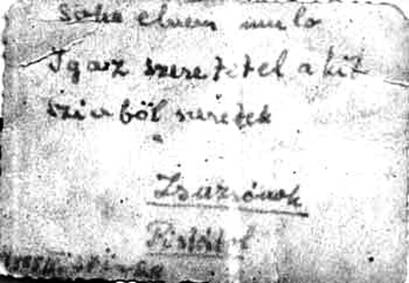 soha elnem mulo
Igaz szeretetel a kit
szivből szeretek
Zsuzsónak
Pistától